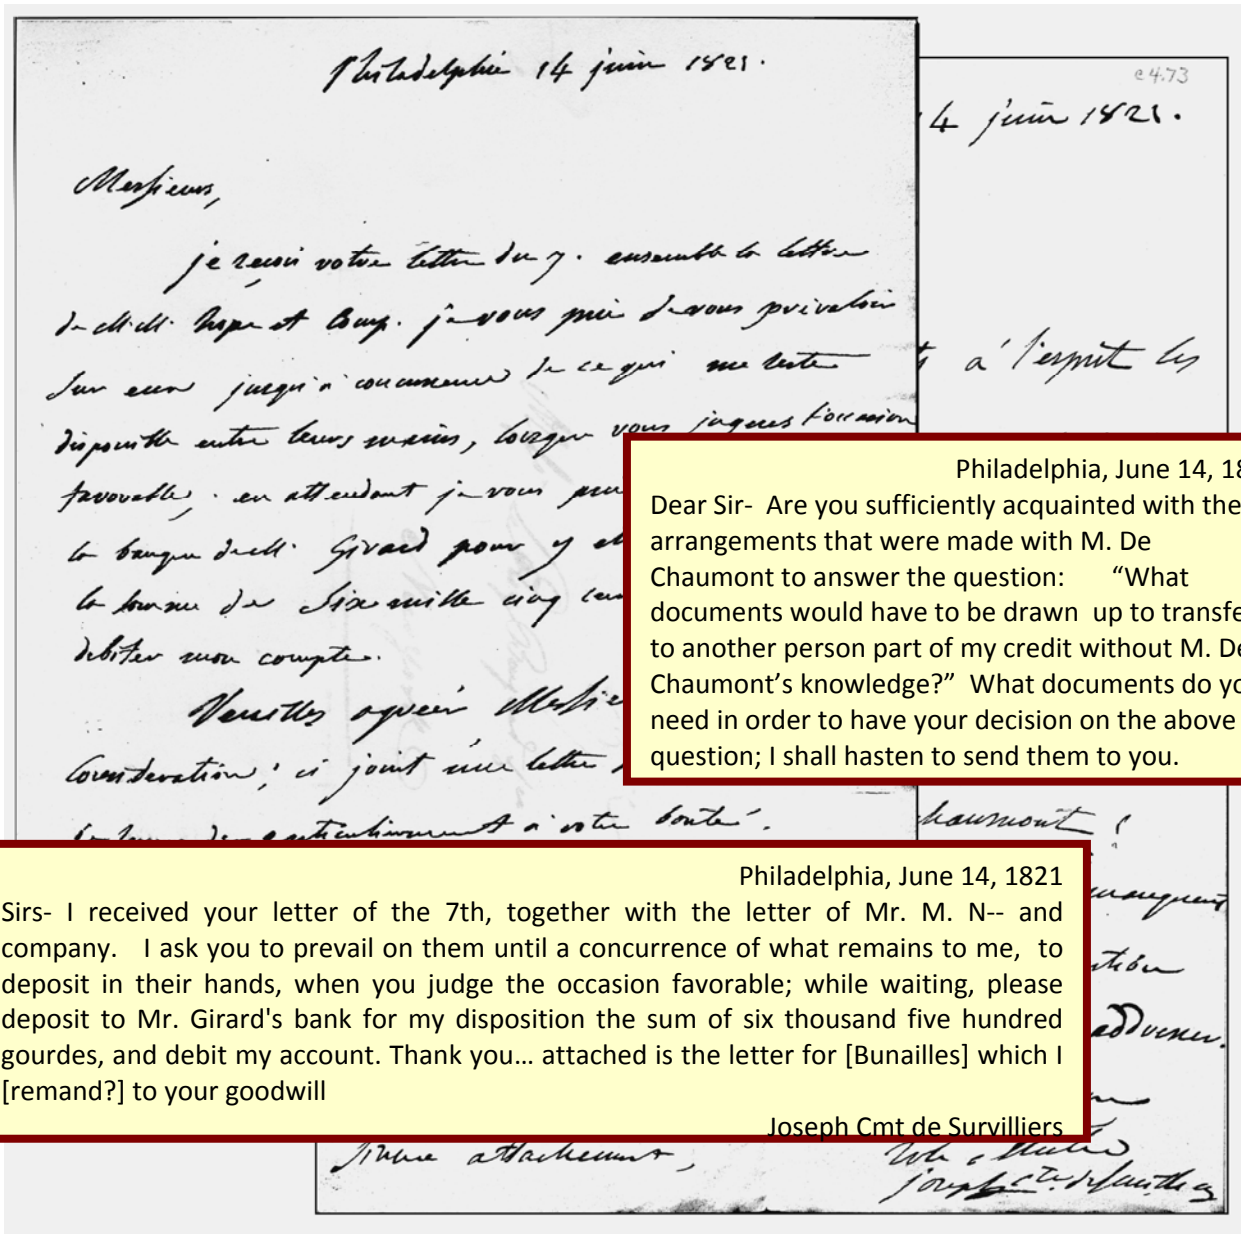 Philadelphie 14 juin 1821.
Messieurs,
je reçoi votre lettre du 7. ensemble la lettre
de M.M. hope et Comp. je vous prie de vous prévaloir
sur eux jusqu'à concurrence de ce qui me reste
disponible entre leurs mains, lorsque vous jugerez l'occasion
favorable; en attendant je vous
la banque de M. Girard pour y
la somme de Six mille cinq
débiter mon compte.
Veuillez agréer
Considération; ci joint une lettre
particulièrement à votre bonté.
e4.73
4 juin 1821.
à l'esprit les
Philadelphia, June 14, 18
Dear Sir- Are you sufficiently acquainted with the
arrangements that were made with M. De
Chaumont to answer the question: “What
documents would have to be drawn up to transfe
to another person part of my credit without M. De
Chaumont’s knowledge?” What documents do yo
need in order to have your decision on the above
question; I shall hasten to send them to you.
haumont ?
manquent
Philadelphia, June 14, 1821
Sirs- I received your letter of the 7th, together with the letter of Mr. M. N-- and
company. I ask you to prevail on them until a concurrence of what remains to me, to
deposit in their hands, when you judge the occasion favorable; while waiting, please
deposit to Mr. Girard's bank for my disposition the sum of six thousand five hundred
gourdes, and debit my account. Thank you… attached is the letter for [Bunailles] which I
[remand?] to your goodwill
Joseph Cmt de Survilliers
sincere attachement,
joseph